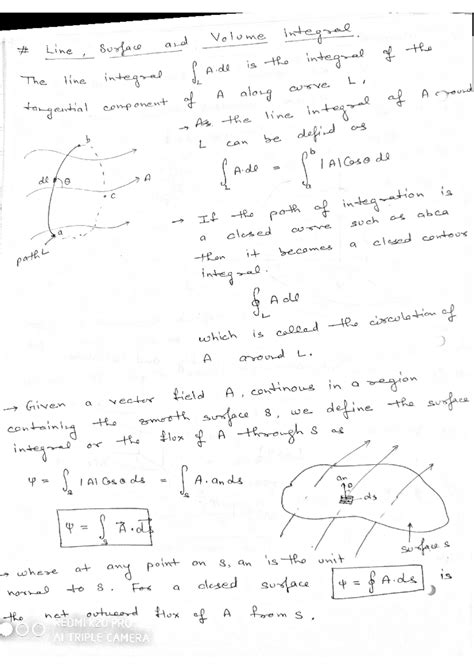 # Line, Surface and Volume Integral.
The line integral ∫_L A·dl is the integral of the
tangential component of A along curve L.
→ As the line integral of A around
L can be defind as
∫_L A·dl = ∫_a^b |A| Cos θ dl
b
dl
θ
A
c
a
path L
→ If the path of integration is
a closed curve such as abca
then it becomes a closed contour
integral.
∮_L A dl
which is called the circulation of
A around L.
→ Given a vector field A, continous in a region
containing the smooth surface S, we define the surface
integral or the flux of A through S as
ψ = ∫_s |A| Cos θ ds = ∫_s A·an ds
ψ = ∫_s A·ds
an
θ
ds
surface s
→ where at any point on S, an is the unit
normal to S. For a closed surface ψ = ∮ A·ds is
the net outword flux of A from S.
REDMI K20 PRO
AI TRIPLE CAMERA